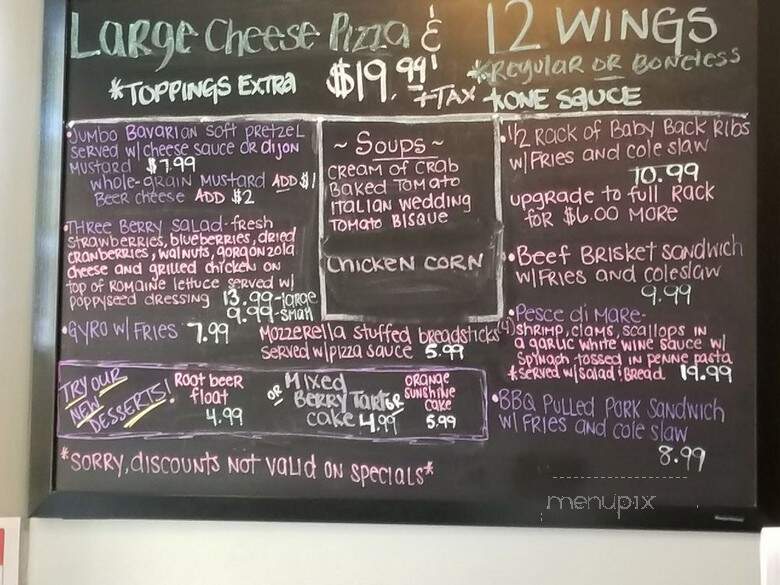 LARGE CHEESE PIZZA & 12 WINGS
*TOPPINGS EXTRA $19.99! +TAX *REGULAR OR BONELESS
*ONE SAUCE
•JUMBO BAVARIAN SOFT PRETZEL
SERVED W/CHEESE SAUCE OR DIJON
MUSTARD $7.99
WHOLE-GRAIN MUSTARD ADD $1
BEER CHEESE ADD $2
•THREE BERRY SALAD-FRESH
STRAWBERRIES, BLUEBERRIES, DRIED
CRANBERRIES, WALNUTS, GORGONZOLA
CHEESE AND GRILLED CHICKEN ON
TOP OF ROMAINE LETTUCE SERVED W/
POPPYSEED DRESSING 13.99-LARGE
9.99-SMALL
•GYRO W/ FRIES 7.99
MOZZERELLA STUFFED BREADSTICKS (4)
SERVED W/PIZZA SAUCE 5.99
~ SOUPS ~
CREAM OF CRAB
BAKED TOMATO
ITALIAN WEDDING
TOMATO BISQUE
CHICKEN CORN
•1/2 RACK OF BABY BACK RIBS
W/FRIES AND COLE SLAW
10.99
UPGRADE TO FULL RACK
FOR $6.00 MORE
•BEEF BRISKET SANDWICH
W/FRIES AND COLESLAW
9.99
•PESCE DI MARE-
SHRIMP, CLAMS, SCALLOPS IN
A GARLIC WHITE WINE SAUCE W/
SPINACH TOSSED IN PENNE PASTA
*SERVED W/SALAD & BREAD 19.99
•BBQ PULLED PORK SANDWICH
W/ FRIES AND COLE SLAW
8.99
TRY OUR
NEW
DESSERTS!
ROOT BEER
FLOAT
4.99
OR
MIXED
BERRY TART
CAKE 4.99
OR
ORANGE
SUNSHINE
CAKE
5.99
*SORRY, DISCOUNTS NOT VALID ON SPECIALS*
menupix